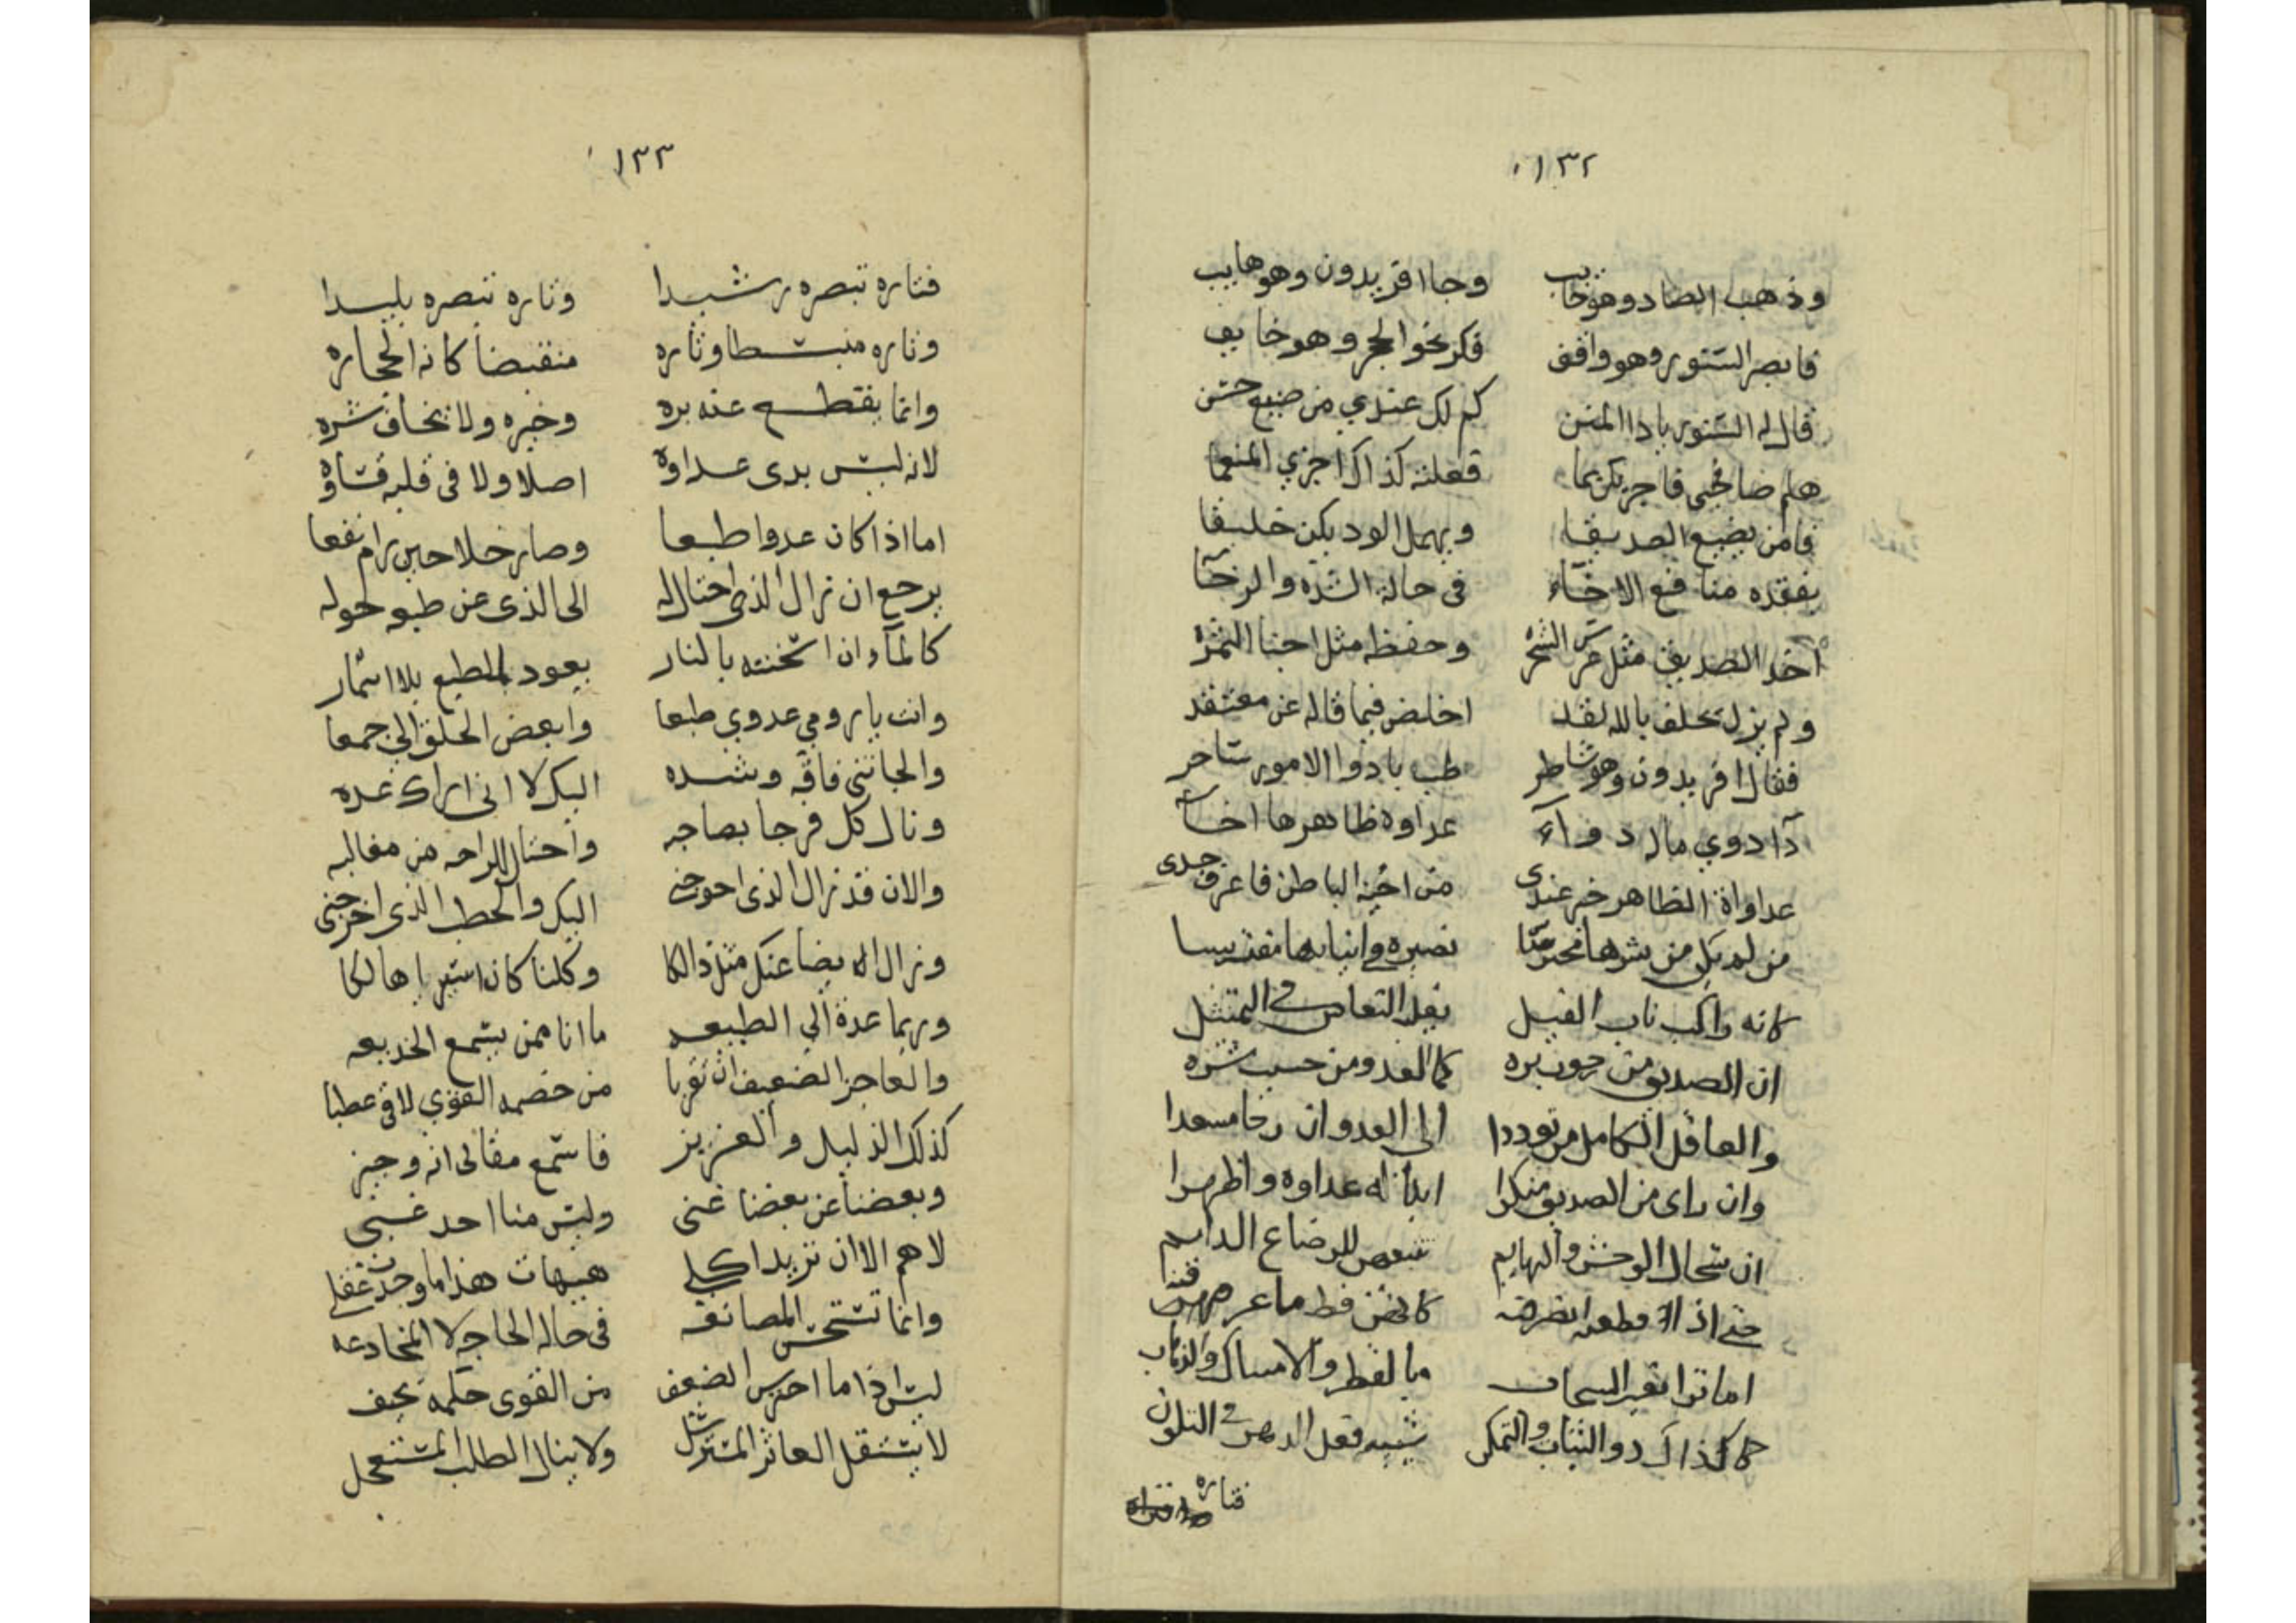 ١٣٢
وذهب الصاد وهو خايب وجا افريدون وهو هايب
فابصر السنور وهو واقف فكر نحو الجحر وهو خايف
قال له السنور ياذا المنن كم لك عندي من صنيع حسن
هلم صافحني فاجزيك بما فعلته كذاك اجزي المنعما
فامن يضيع الصديقا ويهمل الود يكن خليقا
بفقده منافع الاخاء في حالة الشده والرخا
اخذ الصديق مثل غرس الشجره وحفظه مثل اجتنا الثمره
ولم يزل يحلف بالله لقد اخلص فيما قاله عن معتقد
فقال افريدون وهو شاطر طب ياذوا الامور ساحر
دآ دوي ماله دوآء عداوه ظاهرها اخآء
عداواة الظاهر خير عندى من احنه الباطن فاعرف جدى
من لم يكن من شرها محترسا تصيره انيابها مفترسا
كانه راكب ناب الفيل يغله النعاس في التمثيل
ان الصديق من رجوت بره كما العدو من حسبت شره
والعاقل الكامل من توددا الى العدوان رجا مسعدا
وان راى من الصديق منكرا ابدا له عداوه واظهرا
ان سخال الوحش والبهايم تتبعهن للرضاع الدايم
حتى اذا فطمنه انصرفنه كانهن قط ما عرفهنه
اما ترا تغير السحاب بالقطر والامساك والذهاب
كذاك ذو الثبات والتمكن شبيه فعل الدهر في التلون
فتاره
١٣٣
فتاره تبصره رشيدا وتاره تبصره بليدا
وتاره منبسطا وتاره منقبضا كانه الحجاره
وانما يقطع عنه بره وخيره ولا يخاف شره
لانه ليس بدى عداوة اصلا ولا في قلبه قساوة
اما اذا كان عدوا طبعا وصار خلا حين رام نفعا
يرجع ان زال الذي احتال له الى الذى عن طبعه حوله
كالمآء ان اسخنته بالنار يعود للطبع بلا اسمار
وانت يا رومي عدوي طبعا وابغض الخلق الي جمعا
والجاتني فاقه وشده اليك لا اني اراك عده
ونال كل فرجا بصاحبه واحتال للراحه من مغالبه
والان قد زال الذى احوجني اليك والخطب الذى اخرجنى
وزال ايضا عنك مثل ذالكا وكلنا كان اسيرا هالكا
وربما عدة الي الطبيعه ما انا ممن يسمع الخديعه
والعاجز الضعيف ان تقربا من خصمه القوي لاقى عطبا
كذلك الذليل والعزيز فاسمع مقالى انه وجيز
وبعضنا عن بعضنا غنى وليس منا احد غبى
لا هم الا ان تريد اكلي هيهات هذا ما وجدت غفلي
وانما تستحسن المصانعه في حاله الحاجه لا المخادعه
ليس اذا ما احترس الضعيف من القوى حلمه يحيف
لا يستقل العاثر المسترسل ولا ينال الطلب المستعجل